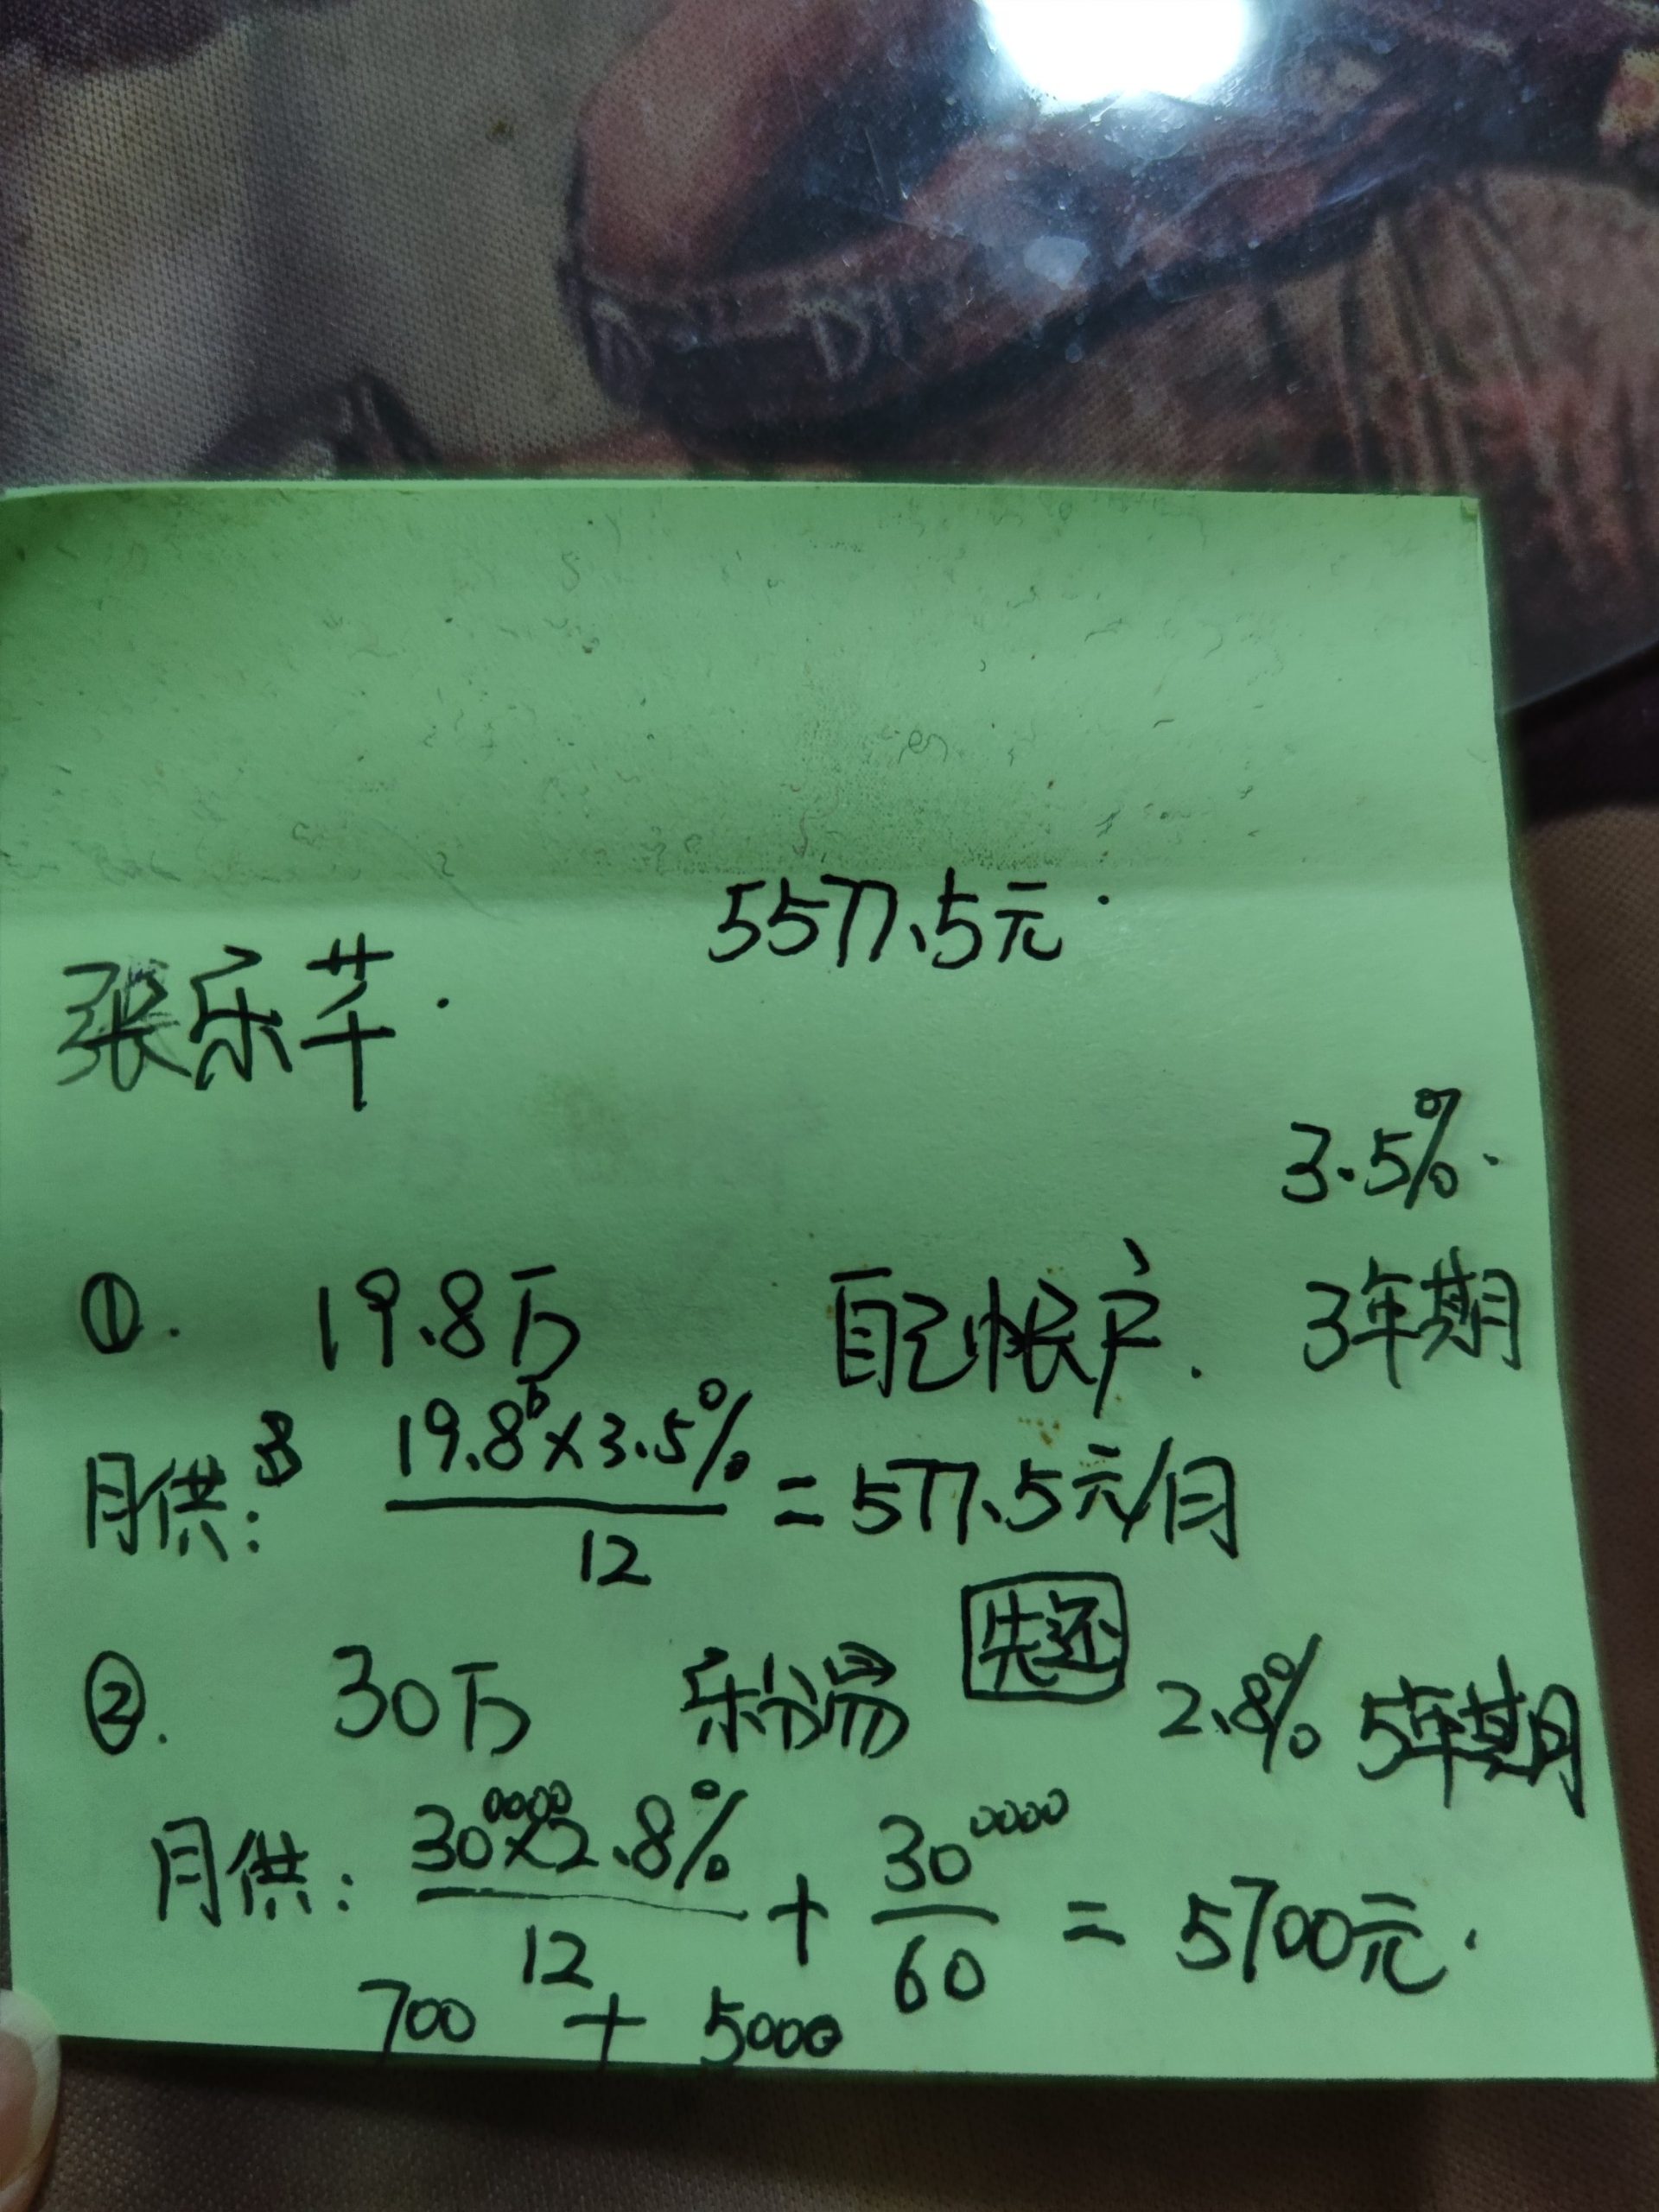 5577.5元.
张乐芊.
3.5%.
①. 19.8万 自己帐户. 3年期
月供: 19.8万×3.5%/12 = 577.5元/月
先还
②. 30万 乐分易 2.8% 5年期
月供: 300000×2.8%/12 + 300000/60 = 5700元.
700 + 5000